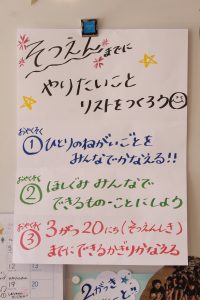 そつえんまでに
やりたいこと
リストをつくろう
おやくそく
① ひとりのねがいごとを
みんなでかなえる!!
おやくそく
② ほしぐみ みんなで
できるもの・ことにしよう
おやくそく
③ 3がつ20にち(そつえんしき)
までにできるかぎりかなえる